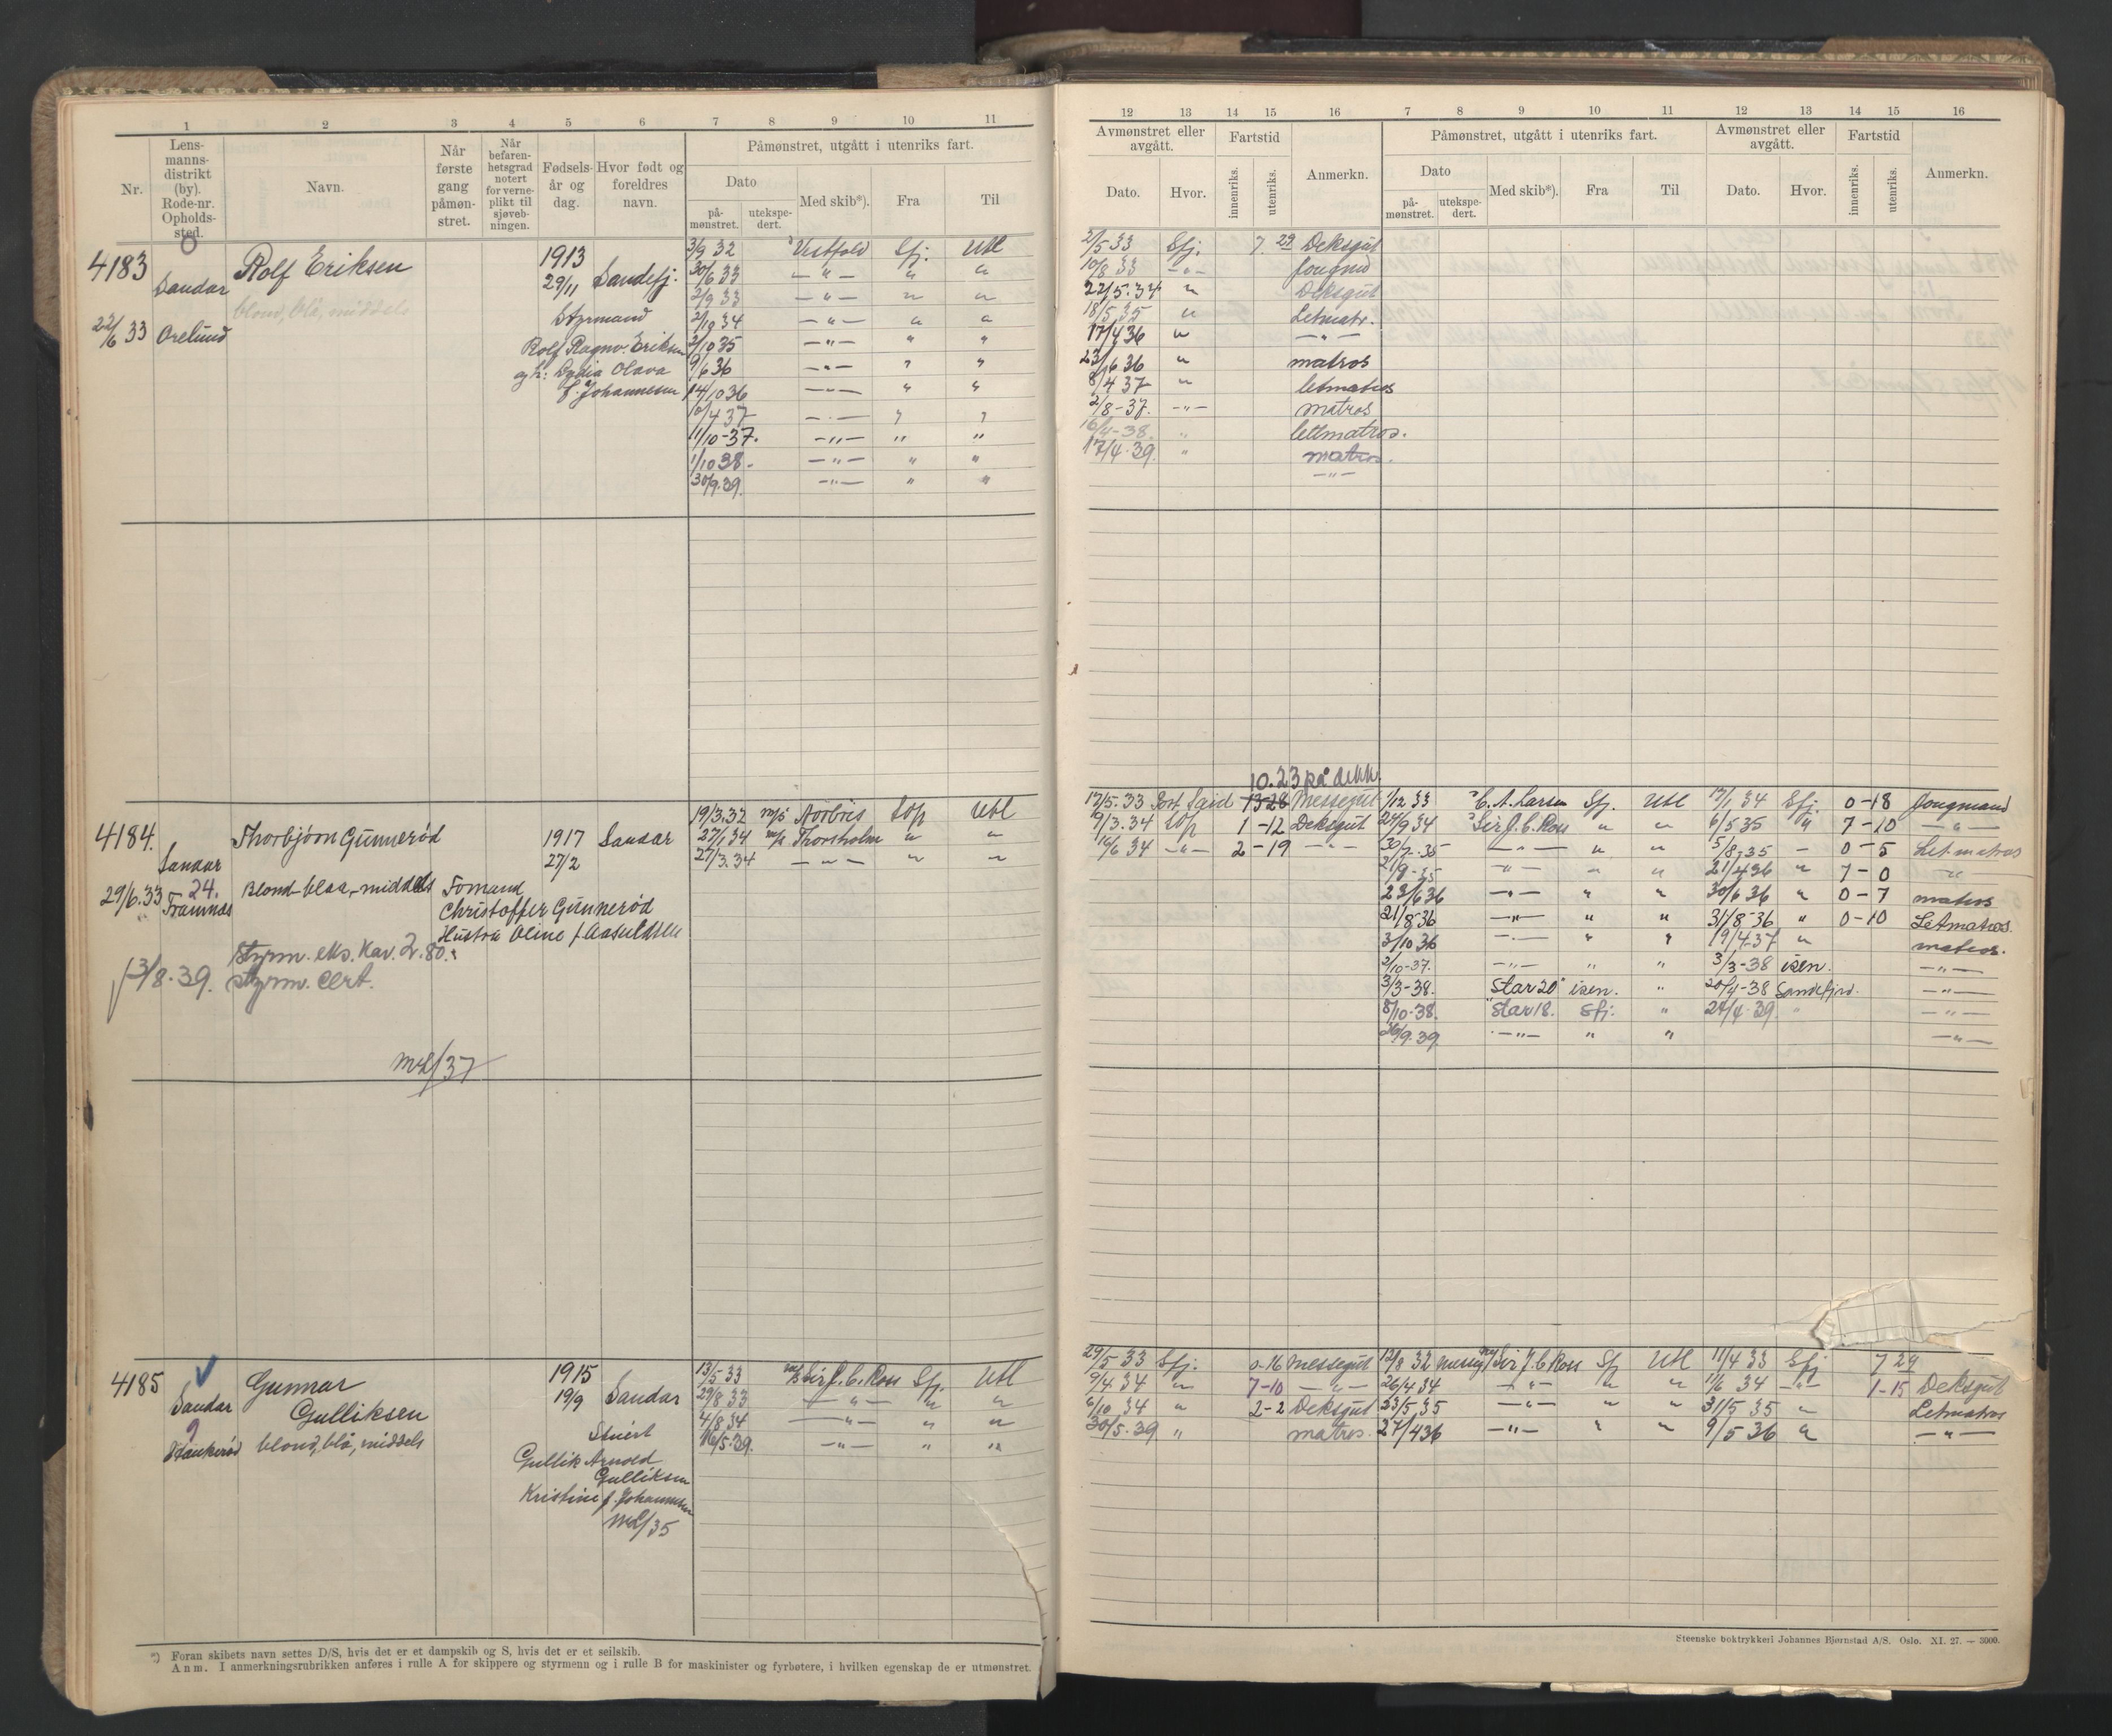 1 2 3 4 5 6 7 8 9 10 11
Nr.
Lens-
manns-
distrikt
(by).
Rode-nr.
Opholds-
sted.
Navn.
Når
første
gang
påmøn-
stret.
Når
befaren-
hetsgrad
notert
for verne-
plikt til
sjøveb-
ningen.
Fødsels-
år og
dag.
Hvor født og
foreldres
navn.
Påmønstret, utgått i utenriks fart.
Dato
på-
mønstret.
utekspe-
dert.
Med skib*).
Fra
Til
4183
Sandar
22/6 33 Orelund
Rolf Eriksen
blond, blå, middels
1913
29/11 Sandefj.
Styrmand
Rolf Ragnv. Eriksen
og h: Lydia Olava
f. Johannesen
3/9 32 " Vestfold Sfj. Utl
30/6 33 — " — " "
2/9 33 — " — " "
2/10 34 — " — " "
2/10 35 — " — " "
9/6 36 — " — " "
14/10 36 — " — " "
10/4 37 — " — " "
11/10-37. — " — " "
1/10 38. — " — " "
30/9.39. — " — " "
4184.
Sandar
24.
29/6.33 Framnæs
Thorbjørn Gunnerød
Blond-blaa-middels
1917 Sandar
27/2
Formand
Christoffer Gunnerød
Hustru Oline f. Aasuldsen
Styrm. eks. Kar. 2.80.
3/8.39. Styrm. cert.
ML/37
19/3.32 m/s Norbris Lop Utl
27/1 34 m/s Thorsholm " "
27/3.34 — " — " "
4185
Sandar
9
Haukerød
Gunnar
Gulliksen
blond, blå, middels
1915
19/9 Sandar
Stuert
Gullik Arnold
Gulliksen
Kristine f. Johannesen
ML/35
13/5 33 m/s Sir J. C. Ross Sfj. Utl
29/8 33 — " — " "
4/8 34 — " — " "
16/5.39. — " — " "
*) Foran skibets navn settes D/S, hvis det er et dampskib og S, hvis det er et seilskib.
Anm. I anmerkningsrubrikken anføres i rulle A for skippere og styrmenn og i rulle B for maskinister og fyrbøtere, i hvilken egenskap de er utmønstret.
12 13 14 15 16 7 8 9 10 11 12 13 14 15 16
Avmønstret eller
avgått.
Dato.
Hvor.
Fartstid
innenriks.
utenriks.
Anmerkn.
Påmønstret, utgått i utenriks fart.
Dato
på-
mønstret.
utekspe-
dert.
Med skib*).
Fra
Til
Avmønstret eller
avgått.
Dato.
Hvor.
Fartstid
innenriks.
utenriks.
Anmerkn.
2/5 33 Sfj. 7. 29 Deksgut
10/8 33 — " — Jongmd
22/5.34 " Deksgut
18/5 35 " Letmatr.
17/4 36 " — " —
23/6 36 " matros
8/4 37 " letmatros
2/8-37. — " — matros
16/4-38. " lettmatros.
17/4.39. " matros.
— " —
10.23 på dekk.
17/5.33 Port Said 13-28 Messegut 1/12 33 " C. A. Larsen Sfj. Utl 19/1 34 Sfj. 0-18 Jongmand
9/3.34 Lop 1-12 Deksgut 24/9 34 " Sir J. C. Ross " " 6/5 35 " 7-10 — " —
16/6 34 — " — 2-19 — " — 30/7-35 — " — " " 5/8-35 — 0-5 Let.matros
21/9-35 — " — " " 21/4 36 " 7-0 — " —
23/6 36 — " — " " 30/6 36 " 0-7 matros
21/8 36 — " — " " 31/8-36 " 0-10 Letmatros.
3/10 36 — " — " " 19/4-37 " matros.
2/10-37. — " — " " 3/3-38 isen. — " —
3/3-38. "Star 20" isen. " 20/4-38 Sandefjord. — " —
8/10-38. "Star 18. Sfj. " 24/4.39. " — " —
30/9.39 — " — " " — " —
29/5 33 Sfj. 0-16 Messegut 12/8 32 Messeg. m/s Sir J. C. Ross Sfj Utl 11/4 33 Sfj 7 29
9/4 34 " 7-10 — " — 26/4 34 — " — " " 11/6 34 — " — 1-15 Deksgut
6/10 34 " 2-2 Deksgut 23/5 35 — " — " " 31/5 35 " Letmatros
30/5.39 " matros. 27/4 36 — " — " " 9/5-36 " — " —
Steenske boktrykkeri Johannes Bjørnstad A/S. Oslo. XI. 27. — 3000.